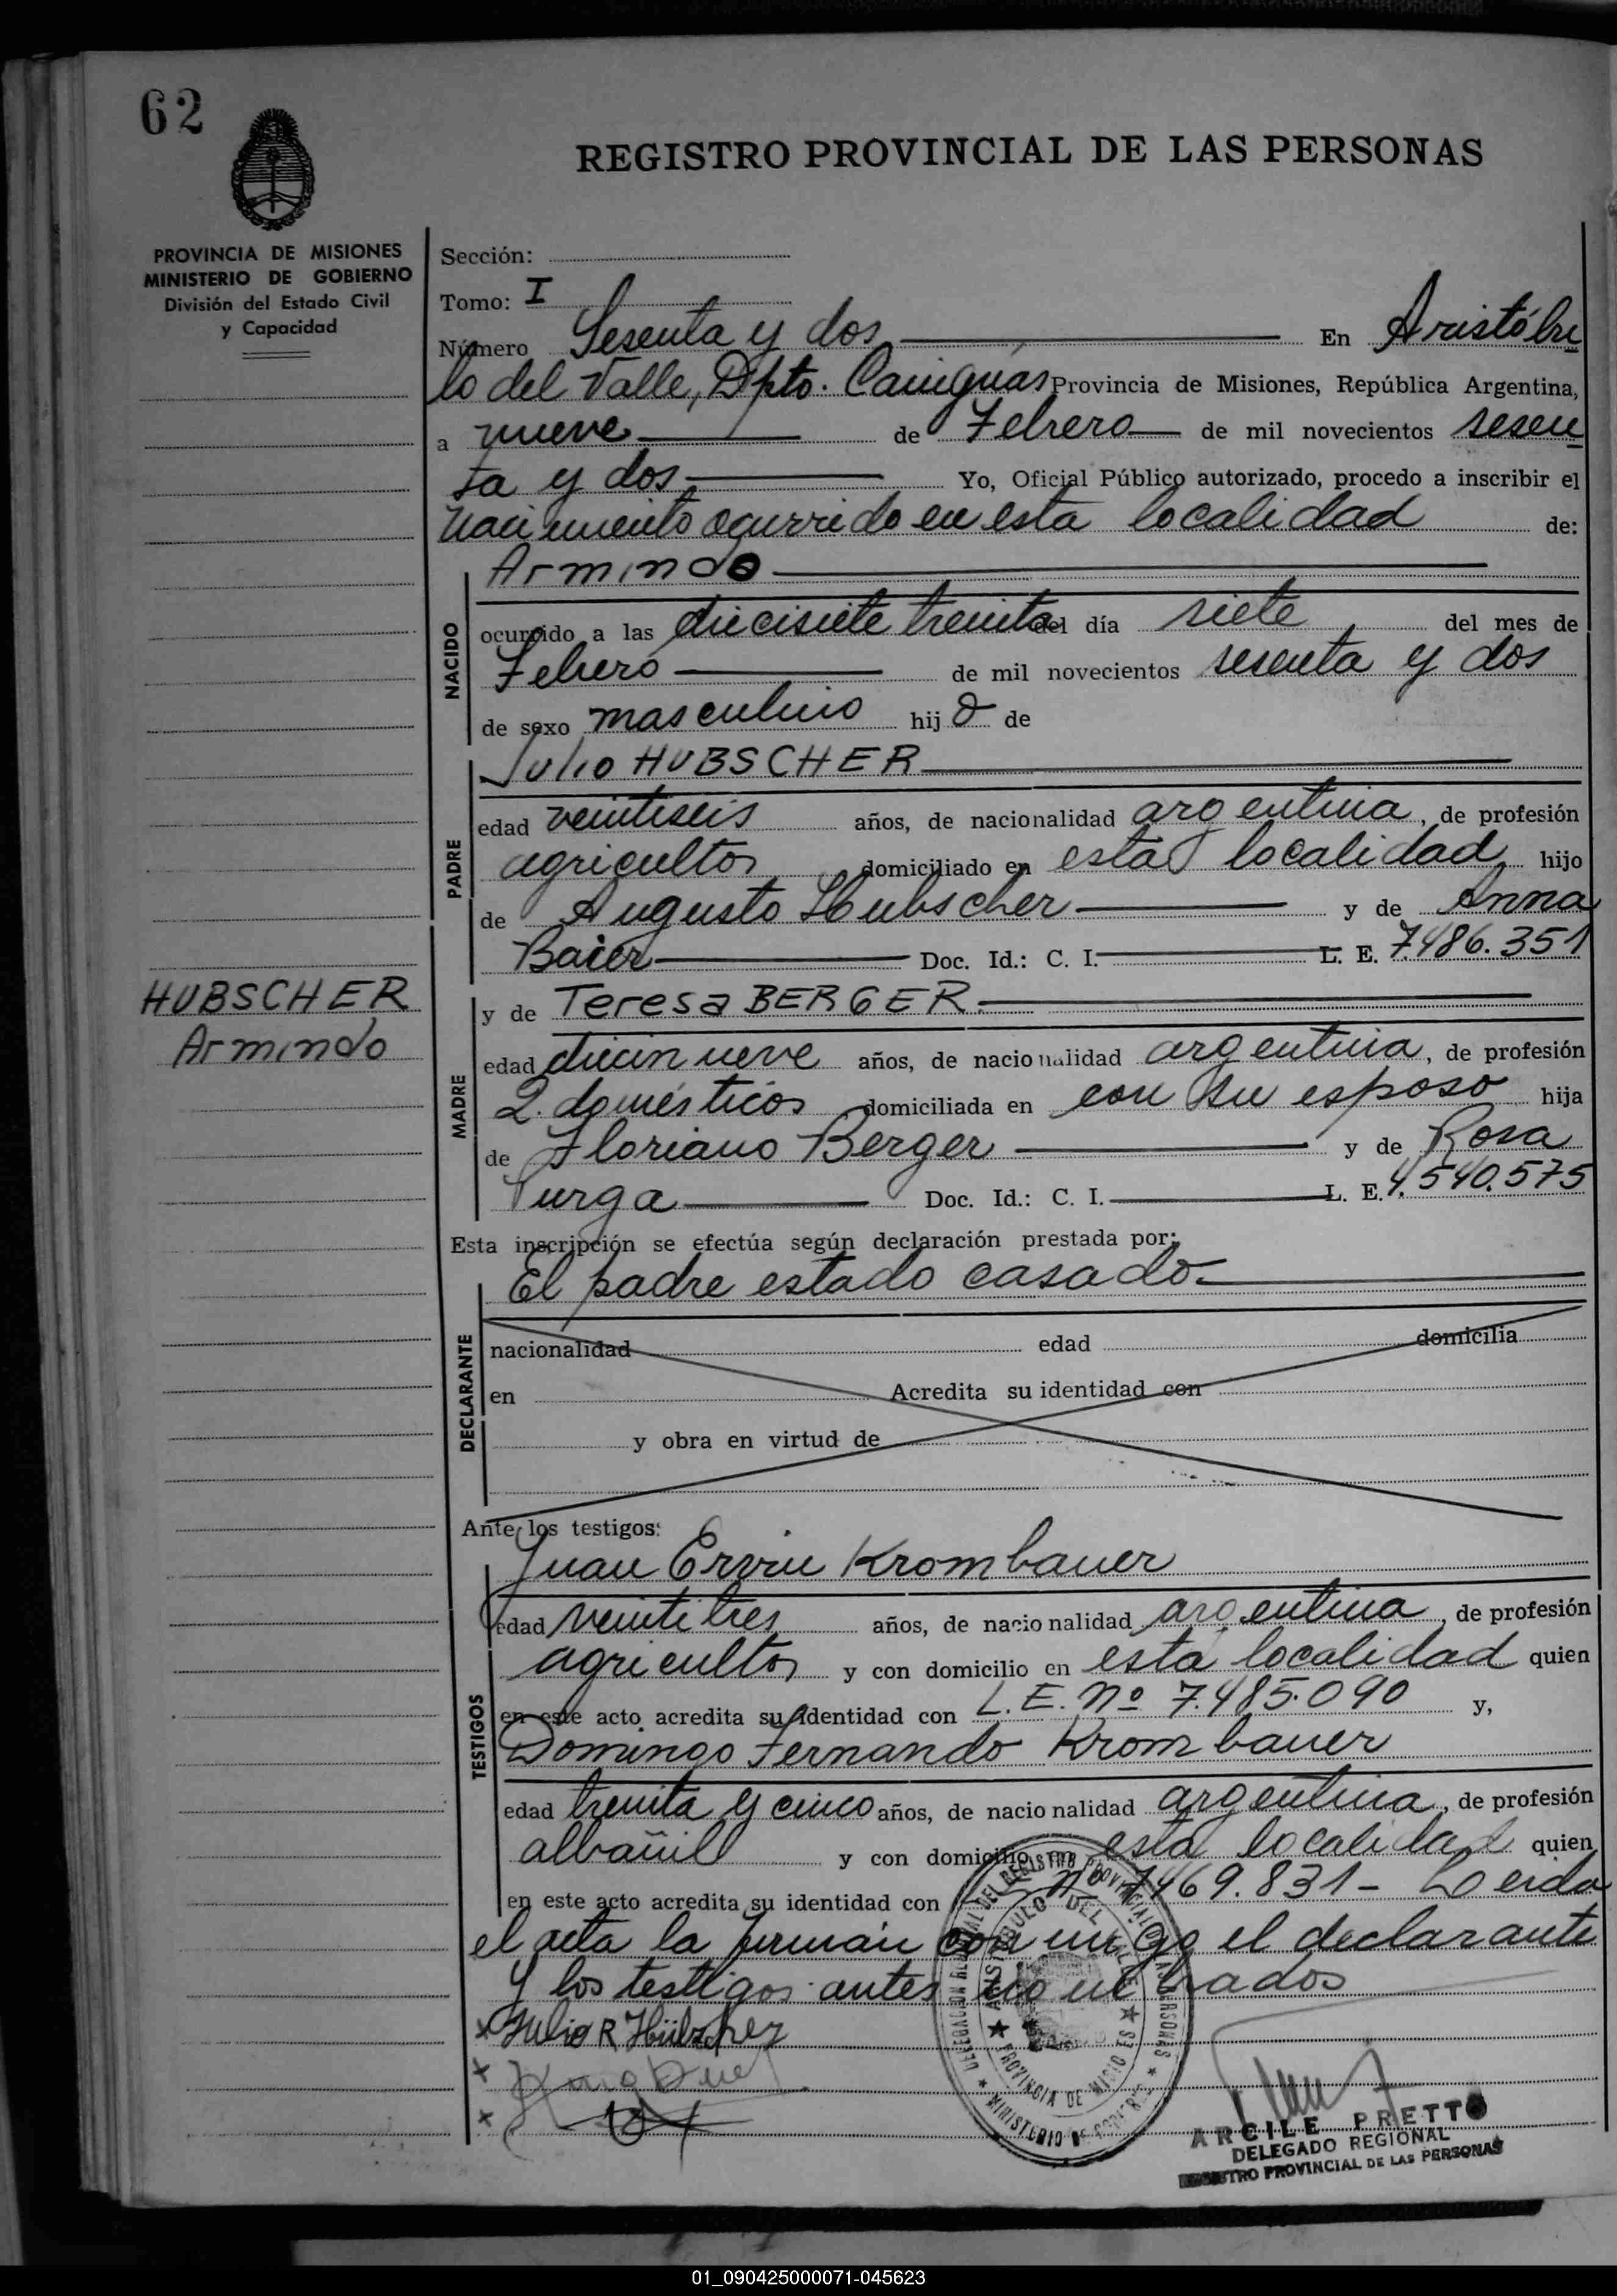 62
REGISTRO PROVINCIAL DE LAS PERSONAS
PROVINCIA DE MISIONES
MINISTERIO DE GOBIERNO
División del Estado Civil
y Capacidad
Sección:
Tomo: I
Número Sesenta y dos En Aristóbu
lo del Valle, Dpto. Cainguás Provincia de Misiones, República Argentina,
a nueve de Febrero de mil novecientos sesen
ta y dos Yo, Oficial Público autorizado, procedo a inscribir el
nacimiento ocurrido en esta localidad de:
Armindo
NACIDO
ocurrido a las diecisiete treinta del día siete del mes de
Febrero de mil novecientos sesenta y dos
de sexo masculino hij o de
Julio HUBSCHER
PADRE
edad veintiseis años, de nacionalidad argentina, de profesión
agricultor domiciliado en esta localidad hijo
de Augusto Hubscher y de Anna
Baier Doc. Id.: C. I. L. E. 7.486.351
HUBSCHER
Armindo
y de Teresa BERGER.
MADRE
edad diecinueve años, de nacionalidad argentina, de profesión
Q. domésticos domiciliada en con su esposo hija
de Floriano Berger y de Rosa
Turga Doc. Id.: C. I. L. E. 4.540.575
Esta inscripción se efectúa según declaración prestada por:
El padre estado casado.
DECLARANTE
nacionalidad edad domicilia
en Acredita su identidad con
y obra en virtud de
Ante los testigos:
Juan Ervin Krombauer
TESTIGOS
edad veintitres años, de nacionalidad argentina, de profesión
agricultor y con domicilio en esta localidad quien
en este acto acredita su identidad con L.E. Nº 7.485.090 y,
Domingo Fernando Krombauer
edad treinta y cinco años, de nacionalidad argentina, de profesión
albañil y con domicilio en esta localidad quien
en este acto acredita su identidad con Nº 7469.831- Leida
el acta la firman conmigo el declarante
y los testigos antes nombrados
x Julio R Hübscher
x
x
DELEGACION REGIONAL DEL REGISTRO PROVINCIAL DE LAS PERSONAS
ARISTOBULO DEL VALLE
PROVINCIA DE MISIONES
MINISTERIO DE GOBIERNO
ARCILE PRETTO
DELEGADO REGIONAL
REGISTRO PROVINCIAL DE LAS PERSONAS
01_090425000071-045623